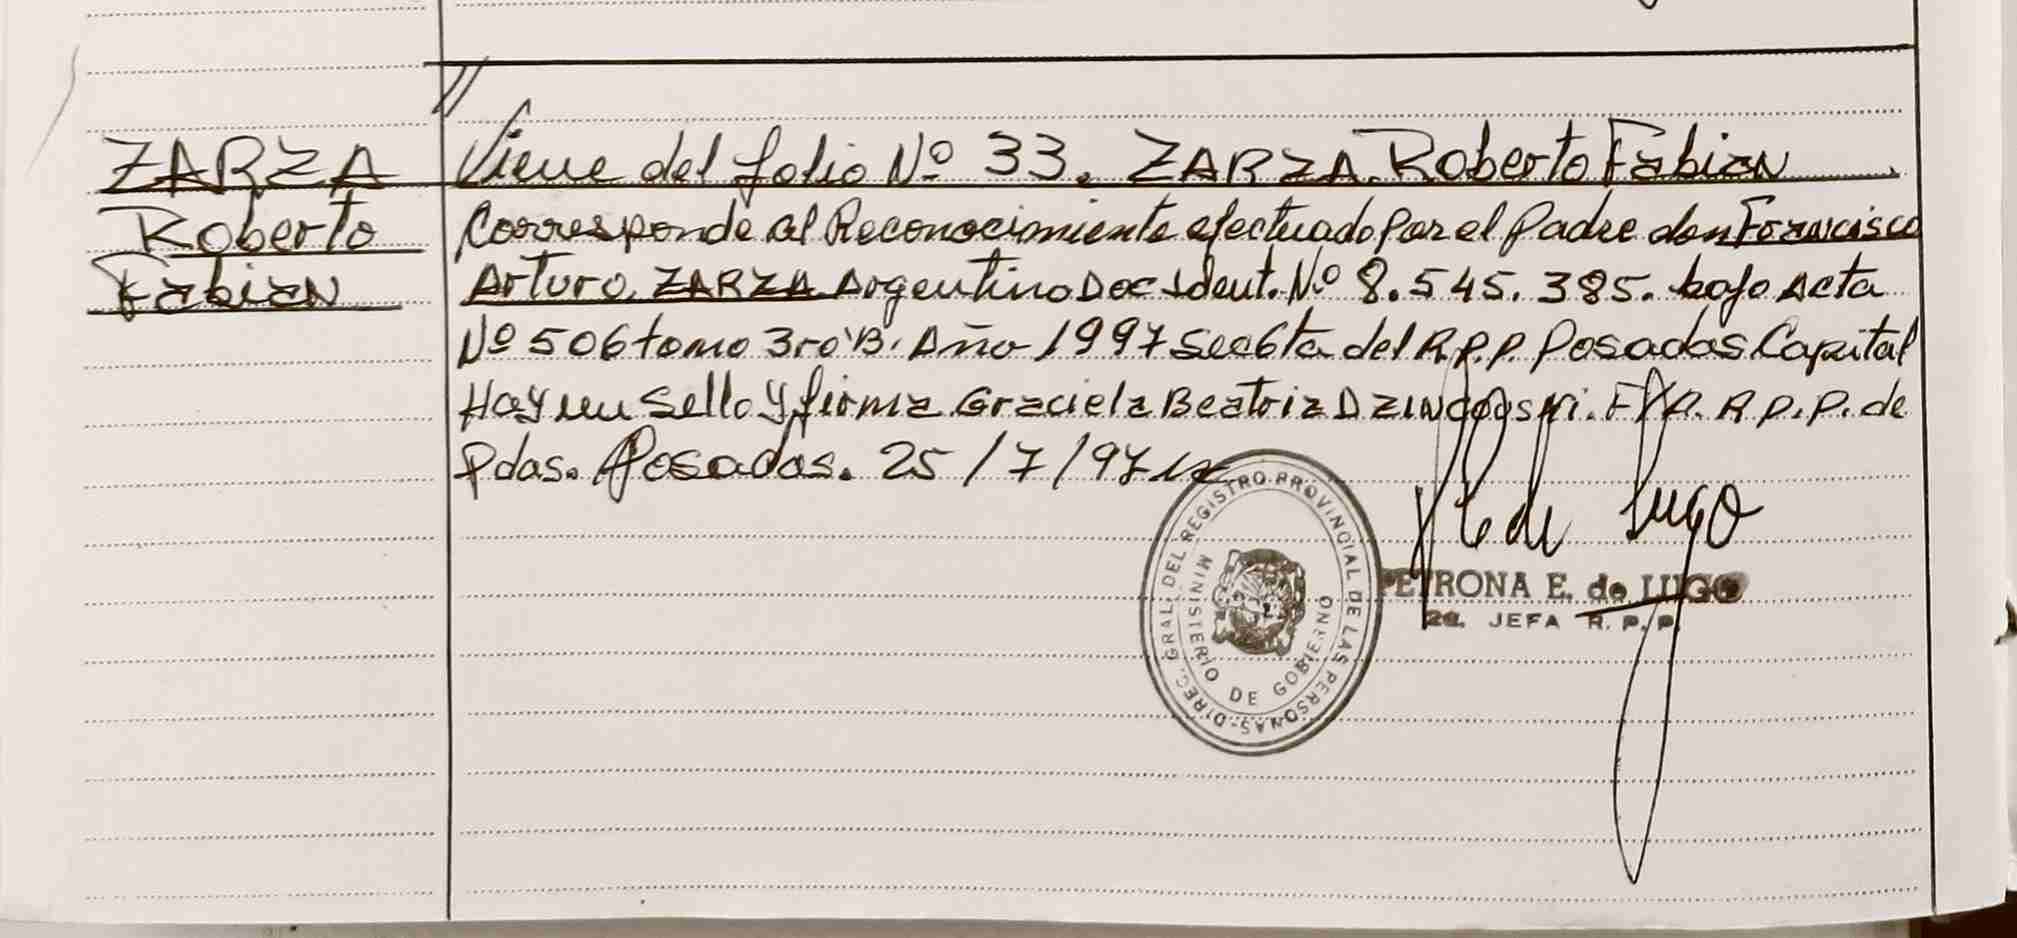 ZARZA
Roberto
Fabian
//
Viene del folio Nº 33. ZARZA. Roberto Fabian
Corresponde al Reconocimiento efectuado Por el Padre don Francisco
Arturo. ZARZA Argentino Doc Ident. Nº 8.545.385. bajo Acta
Nº 506 tomo 3ro "B". Año 1997 Sec 6ta del R.P.P. Posadas Capital
Hay un Sello y firma Graciela Beatriz
R.P.P. de
Pdas. Posadas. 25/7/97
de Lugo
PETRONA E. de LUGO
2a. JEFA R.P.P.
DIREC. GRAL. DEL REGISTRO PROVINCIAL DE LAS PERSONAS-
MINISTERIO DE GOBIERNO